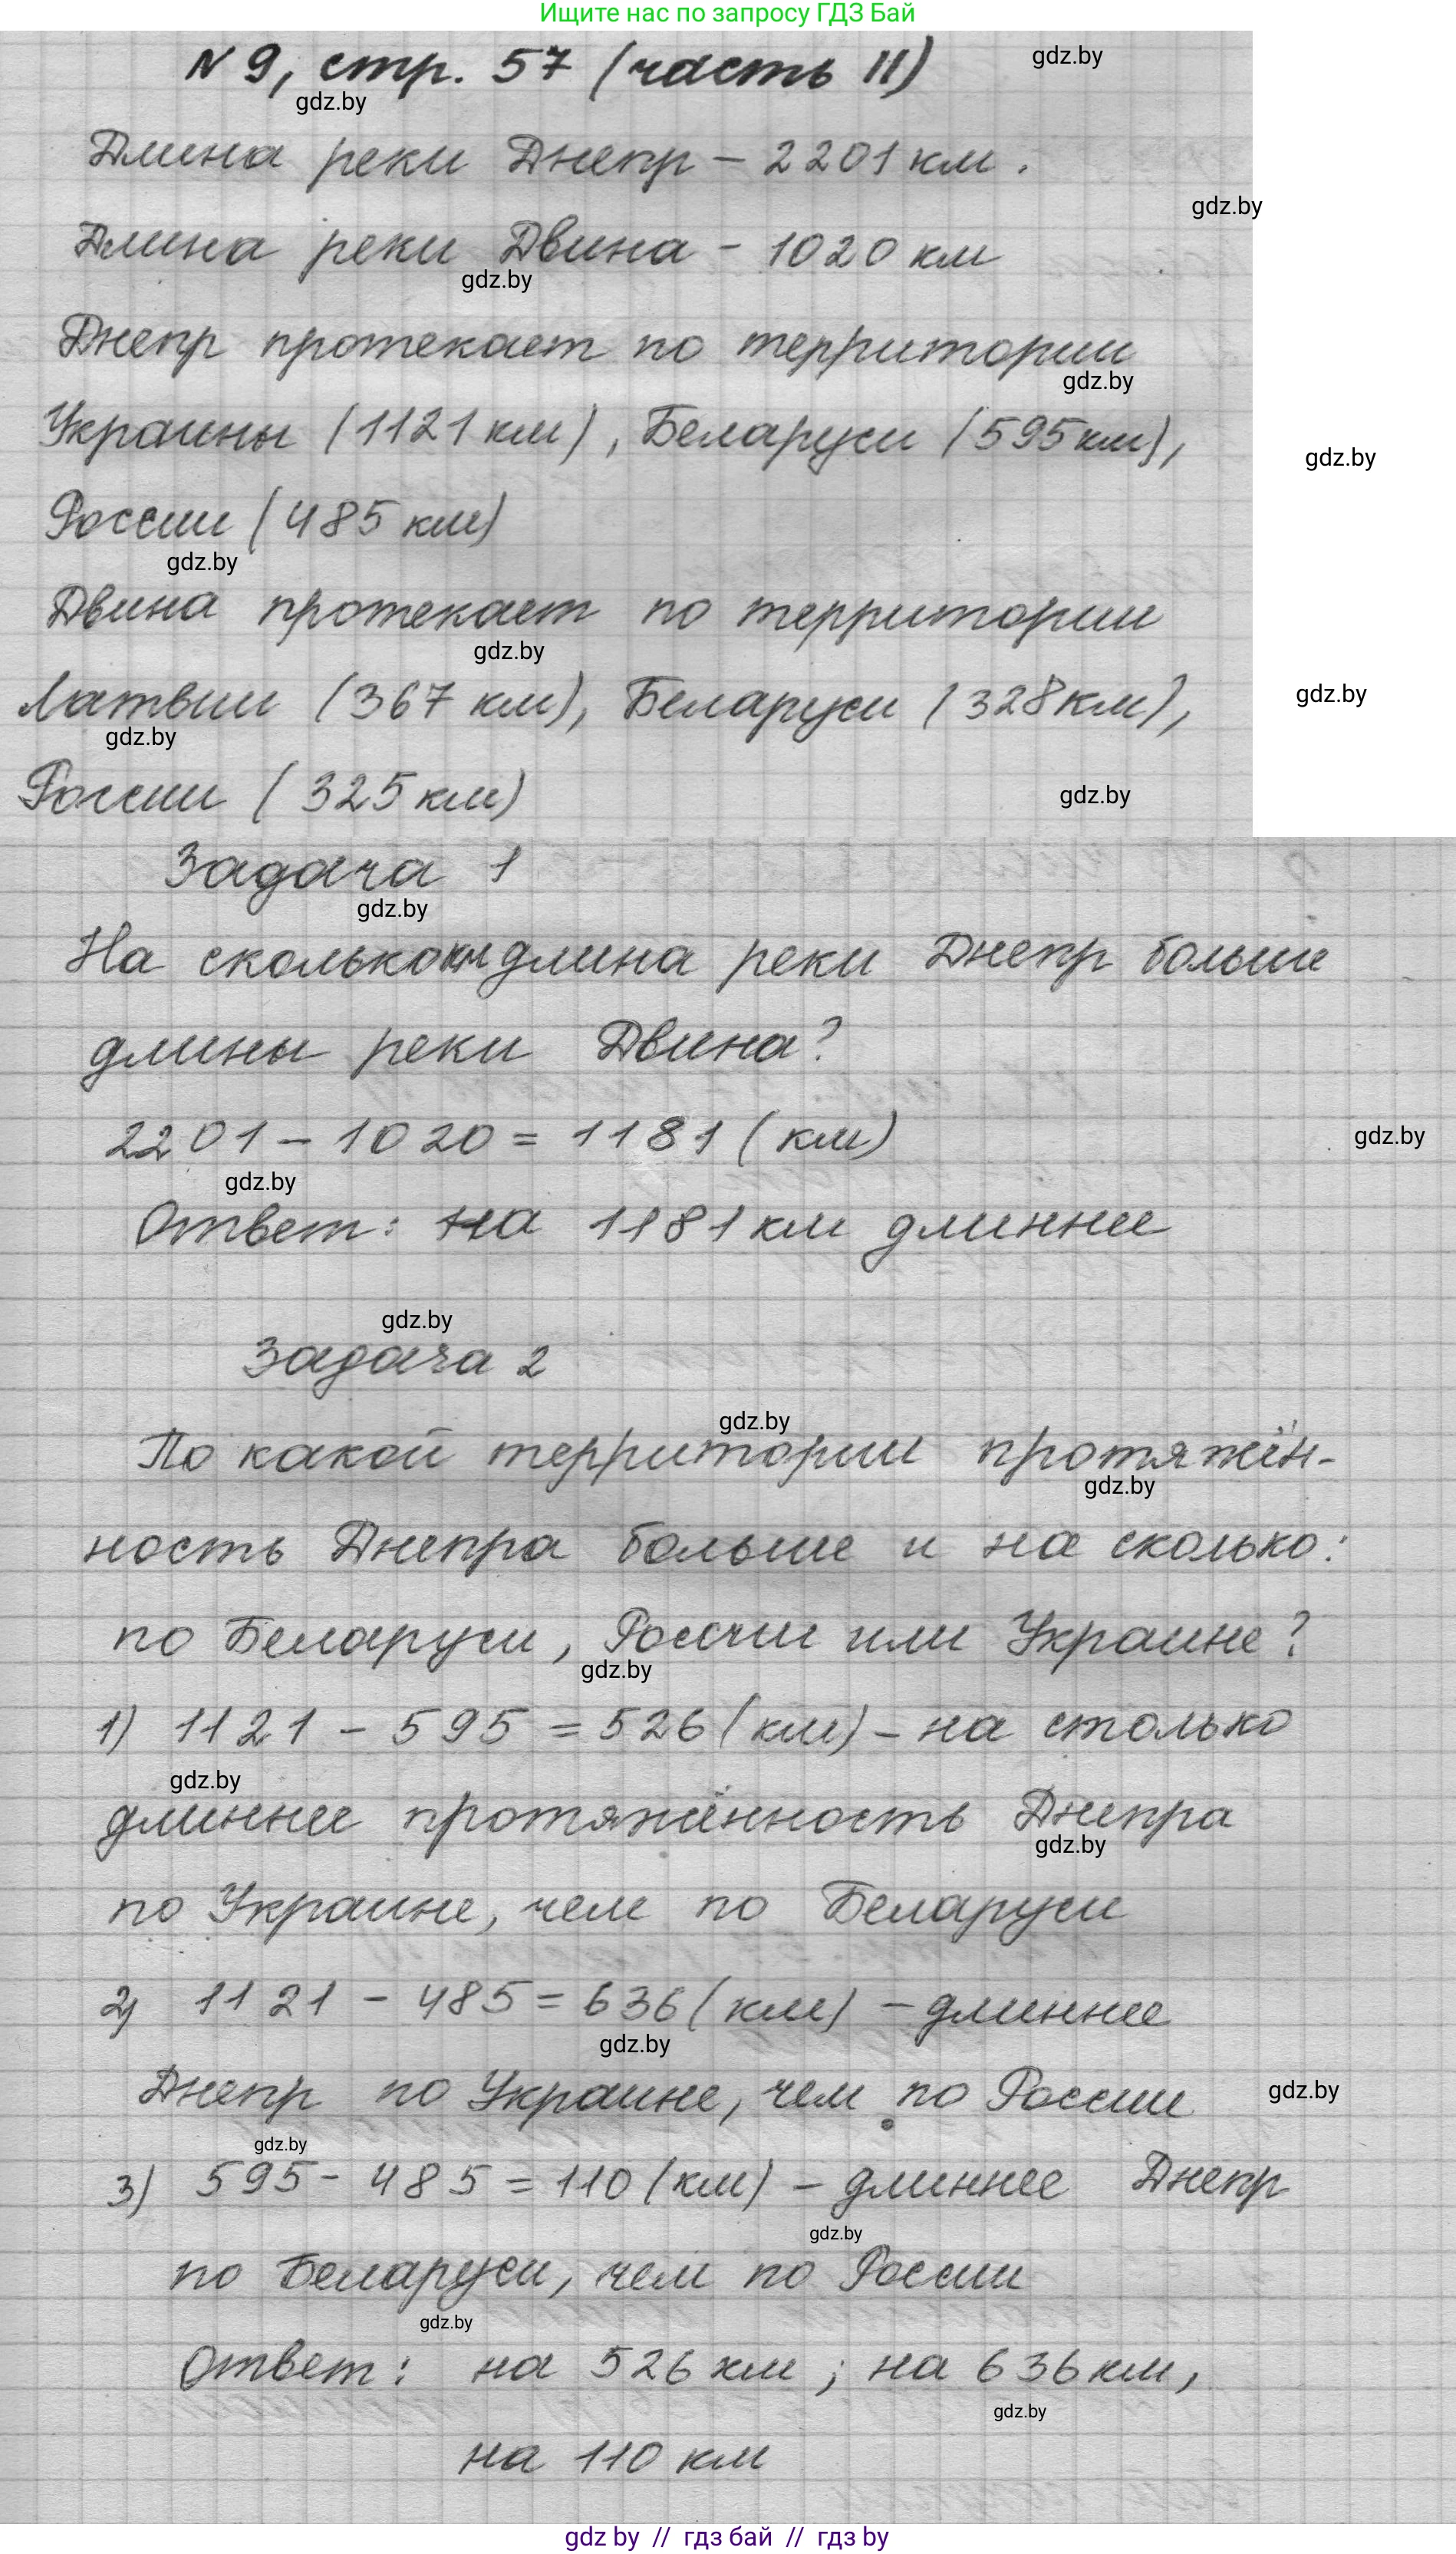 Ищите нас по запросу ГДЗ Бай
N 9, стр. 57 (часть II)
gdz.by
gdz.by
Длина реки Днепр – 2201 км.
gdz.by
Длина реки Двина – 1020 км
gdz.by
Днепр протекает по территории
gdz.by
Украины (1121 км), Беларуси (595 км),
gdz.by
России (485 км)
gdz.by
Двина протекает по территории
gdz.by
Латвии (367 км), Беларуси (328 км),
gdz.by
gdz.by
России (325 км)
gdz.by
Задача 1
gdz.by
На сколько км длина реки Днепр больше
длины реки Двина?
2201 – 1020 = 1181 (км)
gdz.by
gdz.by
Ответ: на 1181 км длиннее
gdz.by
Задача 2
gdz.by
По какой территории протяжён-
gdz.by
ность Днепра больше и на сколько:
по Беларуси, России или Украине?
gdz.by
1) 1121 – 595 = 526 (км) – на столько
gdz.by
длиннее протяжённость Днепра
gdz.by
по Украине, чем по Беларуси
2) 1121 – 485 = 636 (км) – длиннее
gdz.by
Днепр по Украине, чем по России
gdz.by
gdz.by
3) 595 – 485 = 110 (км) – длиннее Днепр
gdz.by
по Беларуси, чем по России
gdz.by
Ответ: на 526 км; на 636 км,
gdz.by
на 110 км
gdz by // гдз бай // гдз by